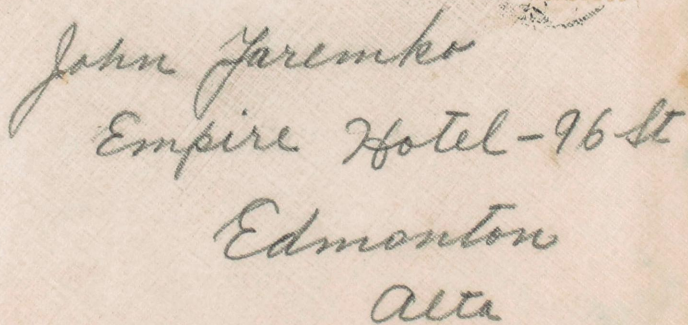 John Jaremko
Empire Hotel - 96 St
Edmonton
Alta